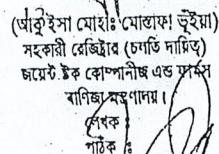 (আবু ইসা মোহাঃ মোস্তাফা ভূঁইয়া)
সহকারী রেজিষ্ট্রার (চলতি দায়িত্ব)
জয়েন্ট ষ্টক কোম্পানীজ এন্ড ফার্মস
বাণিজ্য মন্ত্রণালয়।
লেখক :
পাঠক :